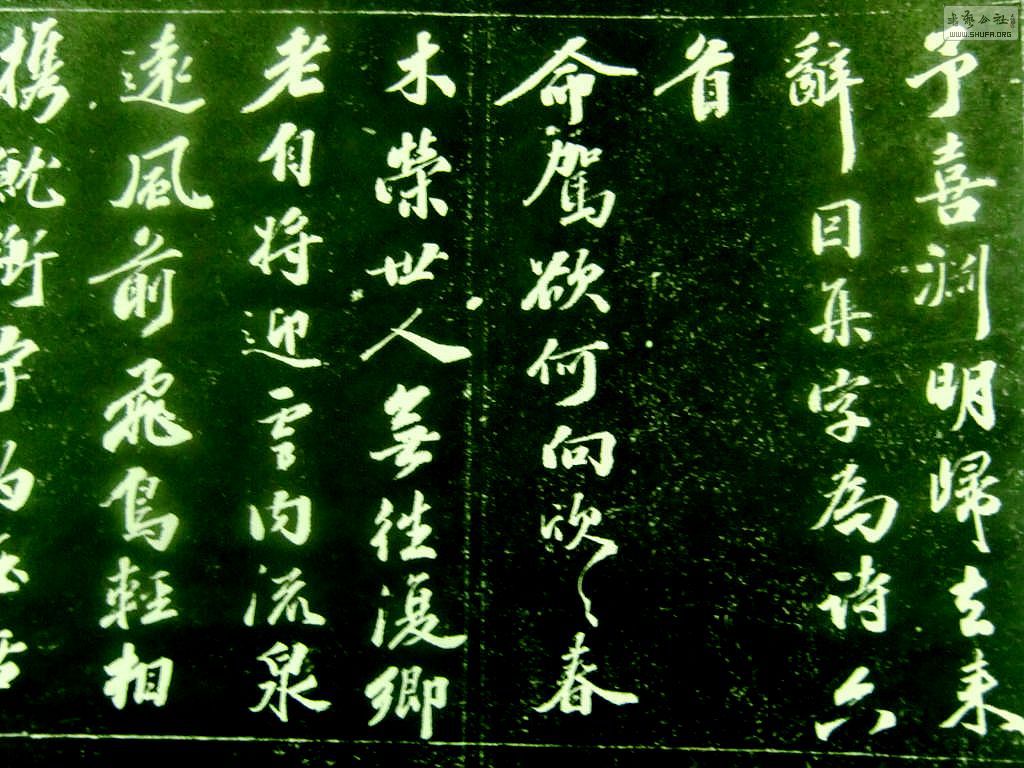 予喜淵明歸去来
辭因集字為詩六
首
命駕欲何向欣〻春
木榮世人無往復鄉
老自将迎雲内流泉
遠風前飛鳥輕相
携就衡宇酌酒話
书艺公社
WWW.SHUFA.ORG